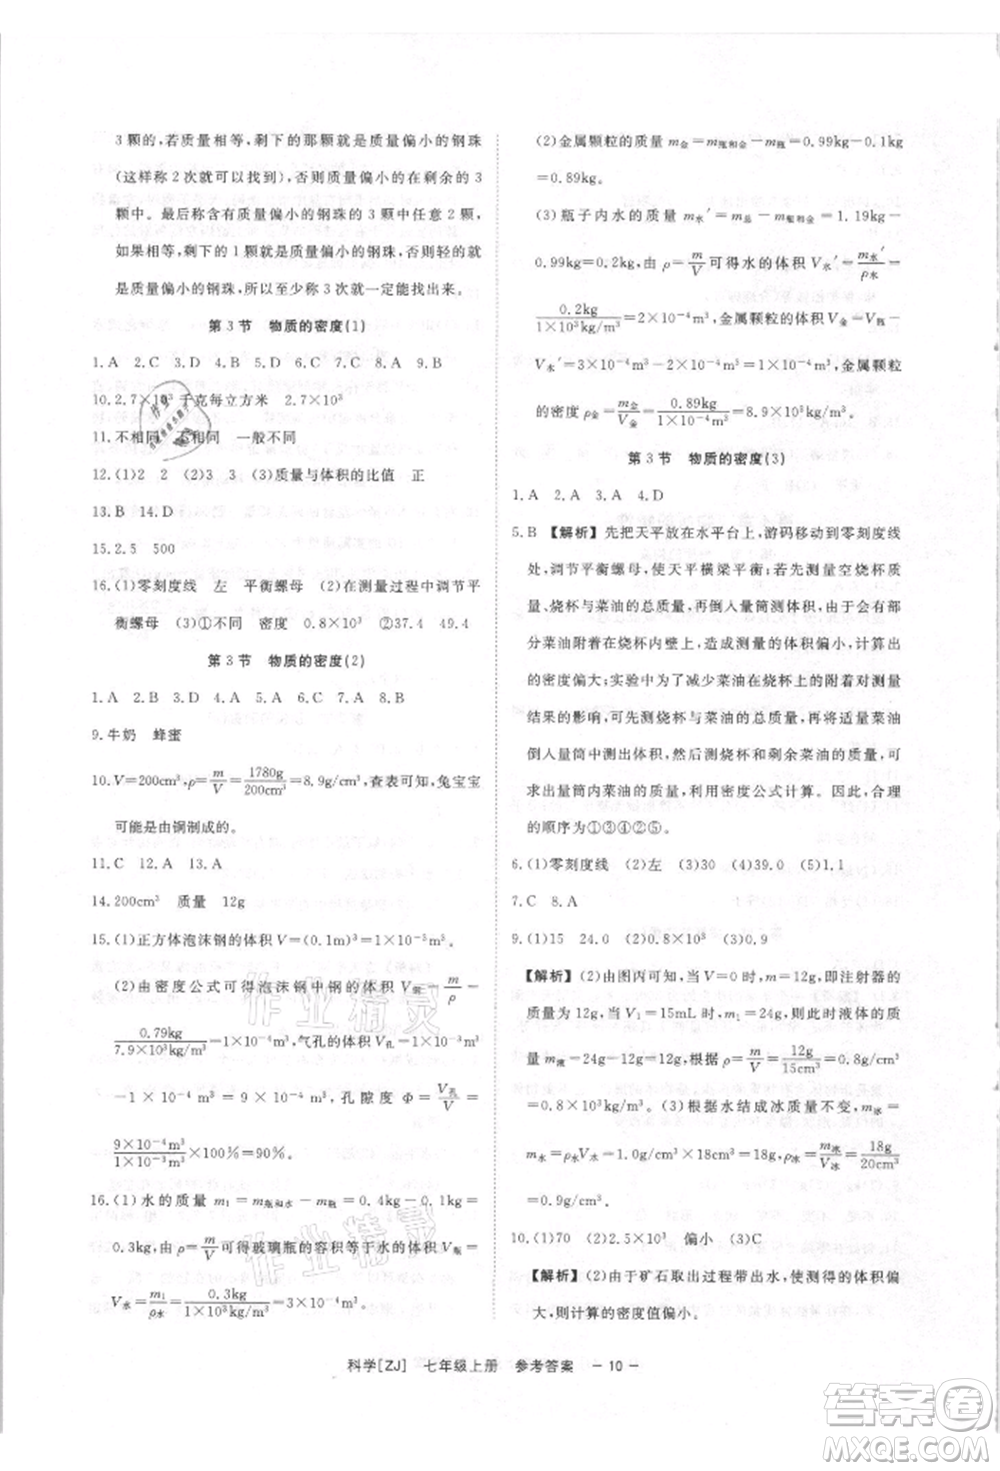 3颗的,若质量相等,剩下的那颗就是质量偏小的钢珠
(这样称2次就可以找到),质量偏小的在剩余的3
颗中。最后称含有质量偏小的钢珠的3颗中任意2颗,
如果相等,剩下的1颗就是质量偏小的钢珠,否则轻的就
是质量偏小的钢珠,所以至少称3次就一定能找出来。
第3节 物质的密度(1)
1.A 2.C 3.D 4.B 5.D 6.C 7.C 8.A 9.B
10.2.7×10³ 千克每立方米 2.7×10³
11.不相同 不相同 一般不同
12.(1)2 2 (2)3 3 (3)质量与体积的比值 正
13.B 14.D
15.2.5 500
16.(1)零刻度线 左 平衡螺母 (2)在测量过程中调节平
衡螺母 (3)①不同 密度 0.8×10³ ②37.4 49.4
第3节 物质的密度(2)
1.A 2.B 3.D 4.A 5.B 6.D 7.A 8.B
9.牛奶 蜂蜜
10.V=200cm³,ρ=m/V=1780g/200cm³=8.9g/cm³,查表可知,兔宝宝
可能是由铜制成的。
11.C 12.A 13.A
14.200cm³ 质量 12g
15.(1)正方体泡沫钢的体积V=(0.1m)³=1×10⁻³m³。
(2)由密度公式可得泡沫钢中钢的体积V钢=m/ρ=
0.79kg/7.9×10³kg/m³=1×10⁻⁴m³,气孔的体积V孔=1×10⁻³m³
−1×10⁻⁴m³=9×10⁻⁴m³,孔隙度Φ=V孔/V=
9×10⁻⁴m³/1×10⁻³m³×100%=90%。
16.(1)水的质量m₁=m瓶和水−m瓶=0.4kg-0.1kg=
0.3kg,由ρ=m/V可得玻璃瓶的容积等于水的体积V瓶=
V水=m₁/ρ水=0.3kg/1×10³kg/m³=3×10⁻⁴m³。
(2)金属颗粒的质量m金=m瓶和金−m瓶=0.99kg-0.1kg
=0.89kg。
(3)瓶子内水的质量m水′=m总−m瓶和金=1.19kg-
0.99kg=0.2kg,由ρ=m/V可得水的体积V水′=m水′/ρ水=
0.2kg/1×10³kg/m³=2×10⁻⁴m³,金属颗粒的体积V金=V瓶
−V水′=3×10⁻⁴m³−2×10⁻⁴m³=1×10⁻⁴m³,金属颗粒
的密度ρ金=m金/V金=0.89kg/1×10⁻⁴m³=8.9×10³kg/m³。
第3节 物质的密度(3)
1.A 2.A 3.A 4.D
5.B 【解析】 先把天平放在水平台上,游码移动到零刻度线
处,调节平衡螺母,使天平横梁平衡;如果测量空烧杯质
量、烧杯与菜油的总质量,再倒入量筒测体积,由于会有
部分菜油附着在烧杯内壁上,造成测量的体积偏小,计算出
的密度偏大;实验中为了减少菜油在烧杯上的附着对测量
结果的影响,可先测烧杯与菜油的总质量,再将适量菜油
倒入量筒中测出体积,然后测烧杯和剩余菜油的总质量,可
求出量筒内菜油的质量,根据密度公式计算。因此,合理
的顺序为①③④②⑤。
6.(1)零刻度线 (2)左 (3)30 (4)39.0 (5)1.1
7.C 8.A
9.(1)15 24.0 (2)0.8×10³ (3)0.9
【解析】 (2)由图内可知,当V=0时,m=12g,即注射器的
质量为12g,当V₁=15mL时,m₁=24g,则此时液体的质
量m液=24g−12g=12g,根据ρ=m/V=12g/15cm³=0.8g/cm³
=0.8×10³kg/m³。(3)根据水结成冰质量不变,m冰=
m水=ρ水V=1.0g/cm³×18cm³=18g,ρ冰=m冰/V冰=18g/20cm³
=0.9g/cm³。
10.(1)70 (2)2.5×10³ 偏小 (3)C
【解析】 (2)由于矿石取出过程带出水,使测得的体积偏
大,则计算的密度值偏小。
科学[ZJ] 七年级上册 参考答案 －10－
作业精灵
作业精灵
答案圈
MXQE.COM